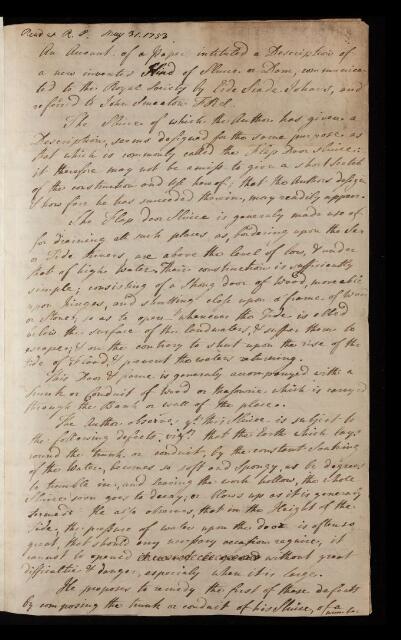 Read at R. S. May 31. 1753
An Account of a Paper intituled a Description of
a new invented Kind of Sluice or Dam, communica-
ted to the Royal Society by and
referred to John Smeaton F.R.S.
The Sluice of which the Author has given a
Description, seems designed for the same purpose as
that which is commonly called the Flap Door Sluice;
it therefore may not be amiss to give a short sketch
of the construction and use hereof; that the Authors design
& how far he has succeeded therein, may readily appear.
The Flap door Sluice is generaly made use of
for draining all such places as, bordering upon the Sea
or Tide Rivers, are above the level of low, & under
that of high Water, their construction is sufficiently
simple; consisting of a strong door of Wood, moveable
upon hinges, and shutting close upon a frame of Wood
or Stone; so as to open whenever the Tide is ebb'd
below the surface of the land waters, & suffer them to
escape; & on the contrary to shut upon the rise of the
tide of Flood, & prevent the waters returning.
This Door & frame is generaly accompanyed with a
trunk or Conduit of Wood or Masonrie which is carryed
through the Bank or wall of the place.
The Author observes yt this Sluice is subject to
the following defects, vizt. that the Earth which lays
round the trunk or conduit, by the constant soaking
of the Water, becomes so soft and spongy, as by degrees
to tumble in, and leaving the work hollow, the whole
Sluice soon goes to decay, or blows up as it is generaly
termed. He also observes, that in the Height of the
Tide, the pressure of water upon the door is often so
great, that should any necessary occasion require, it
cannot be opened without great
difficultie & danger, especialy when it is large.
He proposes to remedy the first of those defects
by composing the trunk or conduit of his Sluice, of a
number